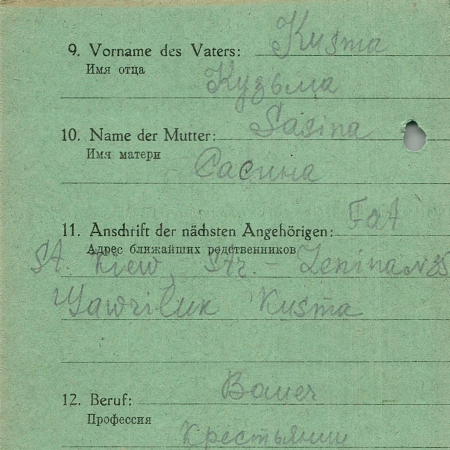 9. Vorname des Vaters: Kusma
Имя отца
Кузьма
10. Name der Mutter: Sasina
Имя матери
Сасина
11. Anschrift der nächsten Angehörigen: Fat
Адрес ближайших родственников
St. Kiew, Str. – Lenina № 25
Gawriluk Kusma
12. Beruf: Bauer
Профессия
Крестьянин